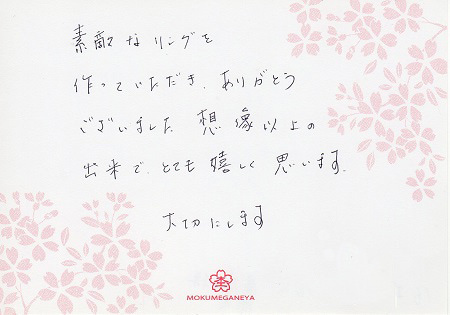 素敵なリングを
作っていただき、ありがとう
ございました。想像以上の
出来で、とても嬉しく思います。
大切にします
MOKUMEGANEYA